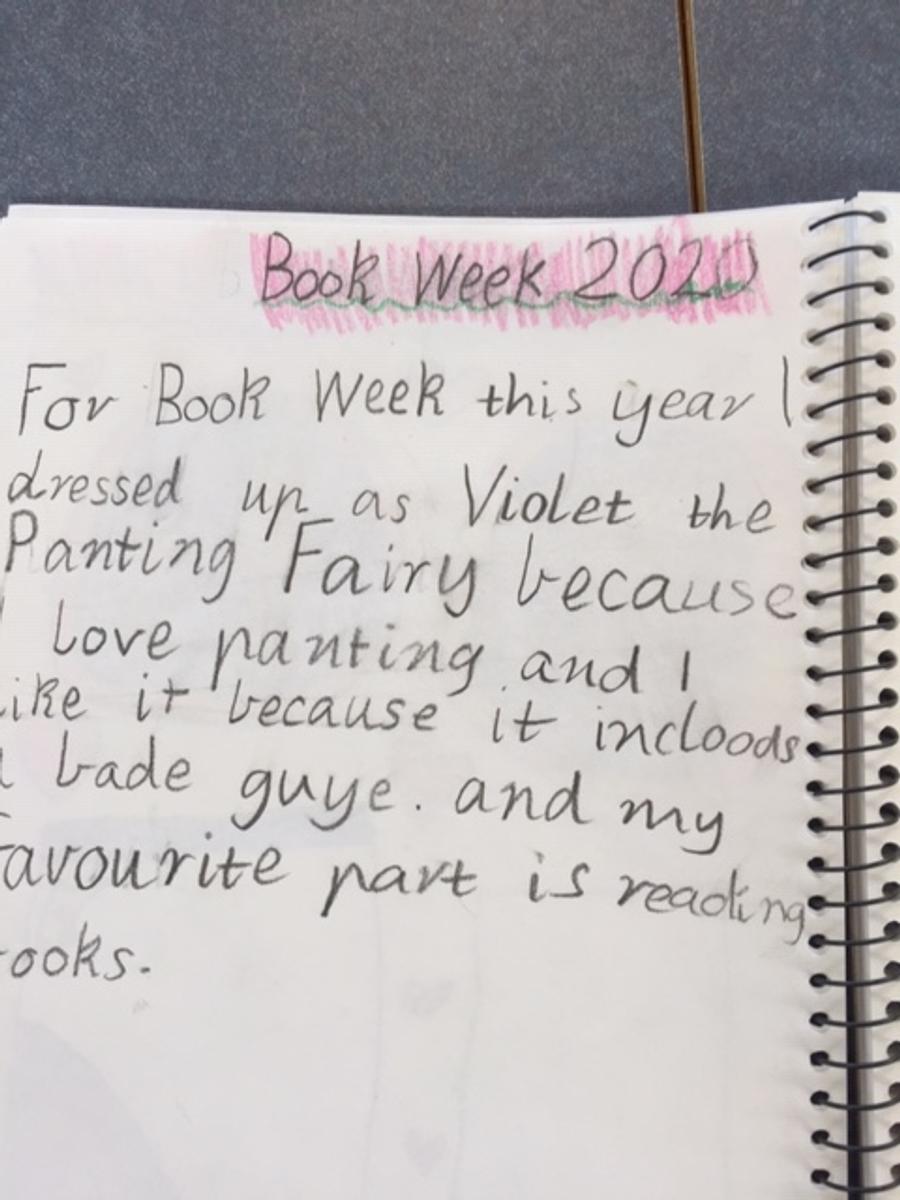 Book Week 2020
For Book Week this year I
dressed up as Violet the
Panting Fairy because
I love panting and I
like it because it incloods
a bade guye. and my
favourite part is reading
books.